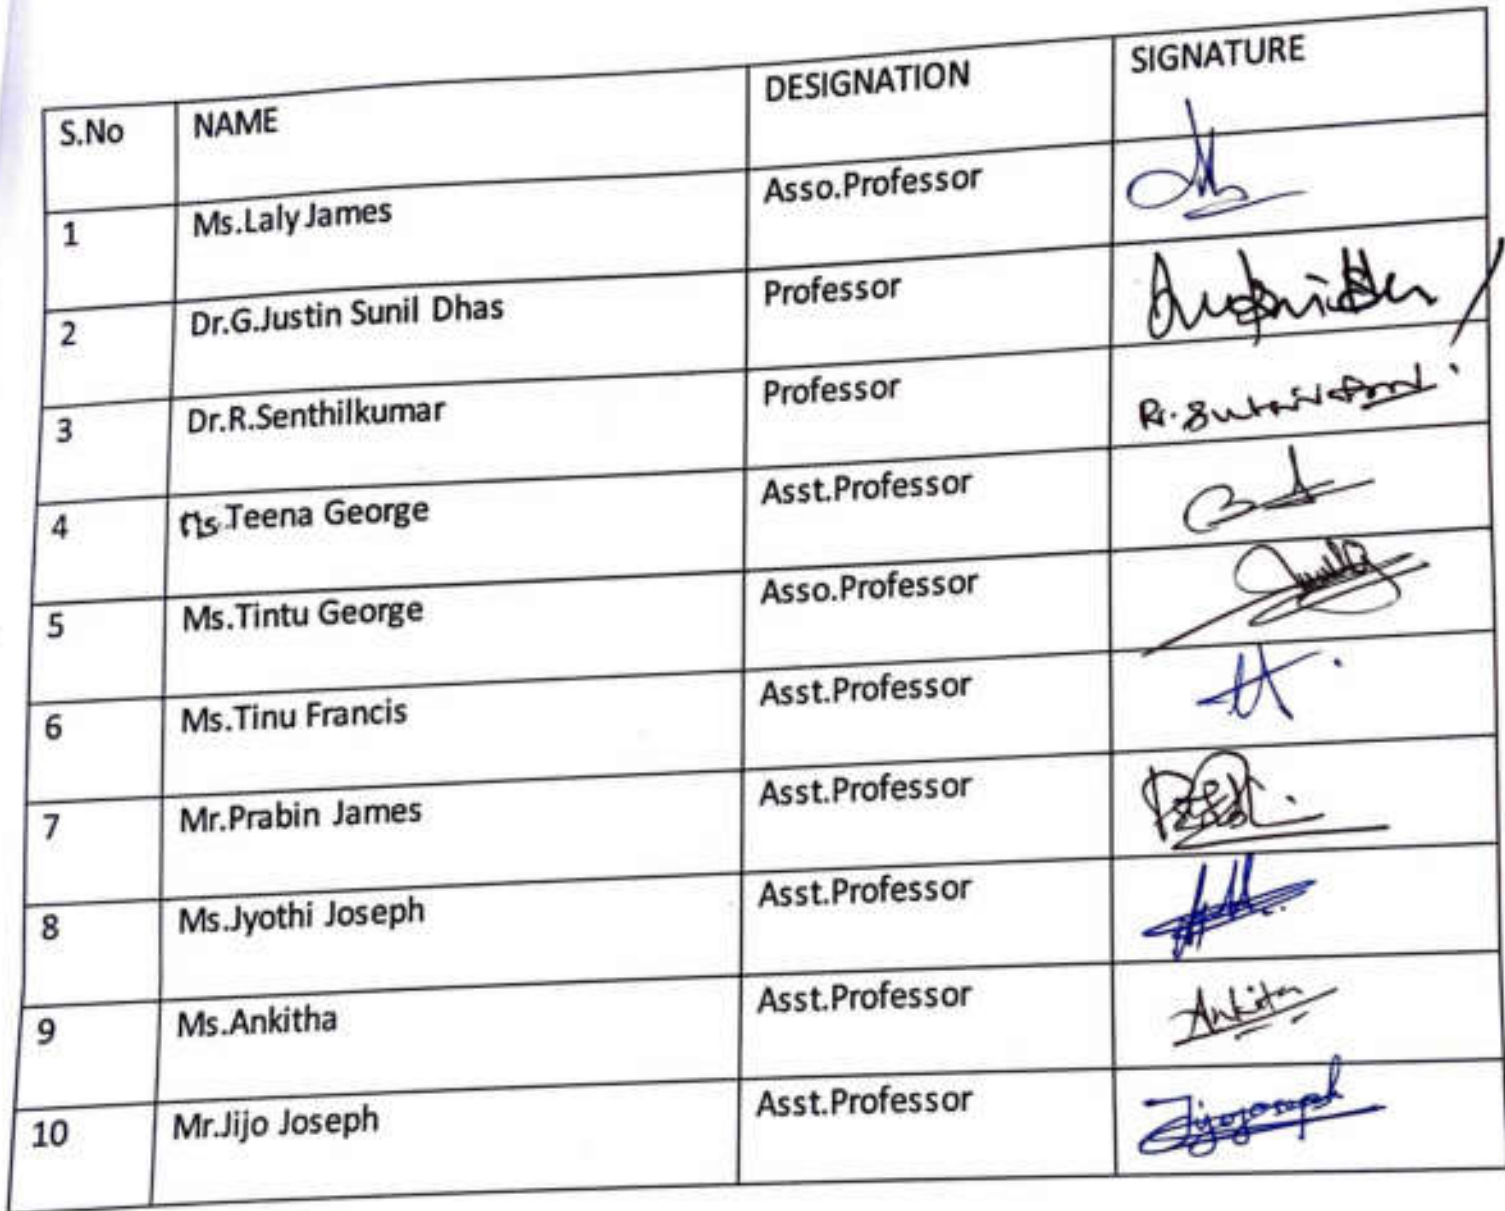 S.No NAME DESIGNATION SIGNATURE
1 Ms.Laly James Asso.Professor
2 Dr.G.Justin Sunil Dhas Professor
3 Dr.R.Senthilkumar Professor
4 Ms.Teena George Asst.Professor
5 Ms.Tintu George Asso.Professor
6 Ms.Tinu Francis Asst.Professor
7 Mr.Prabin James Asst.Professor
8 Ms.Jyothi Joseph Asst.Professor
9 Ms.Ankitha Asst.Professor Ankita
10 Mr.Jijo Joseph Asst.Professor Jijojoseph